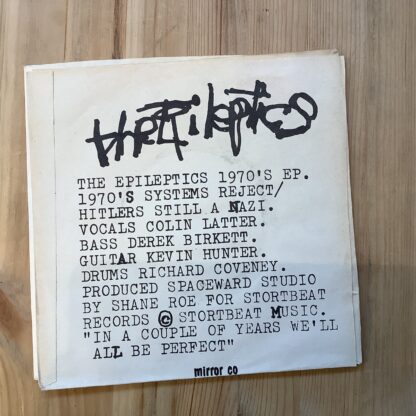 the Epileptics
THE EPILEPTICS 1970'S EP.
1970'S SYSTEMS REJECT/
HITLERS STILL A NAZI.
VOCALS COLIN LATTER.
BASS DEREK BIRKETT.
GUITAR KEVIN HUNTER.
DRUMS RICHARD COVENEY.
PRODUCED SPACEWARD STUDIO
BY SHANE ROE FOR STORTBEAT
RECORDS © STORTBEAT MUSIC.
"IN A COUPLE OF YEARS WE'LL
ALL BE PERFECT"
mirror co